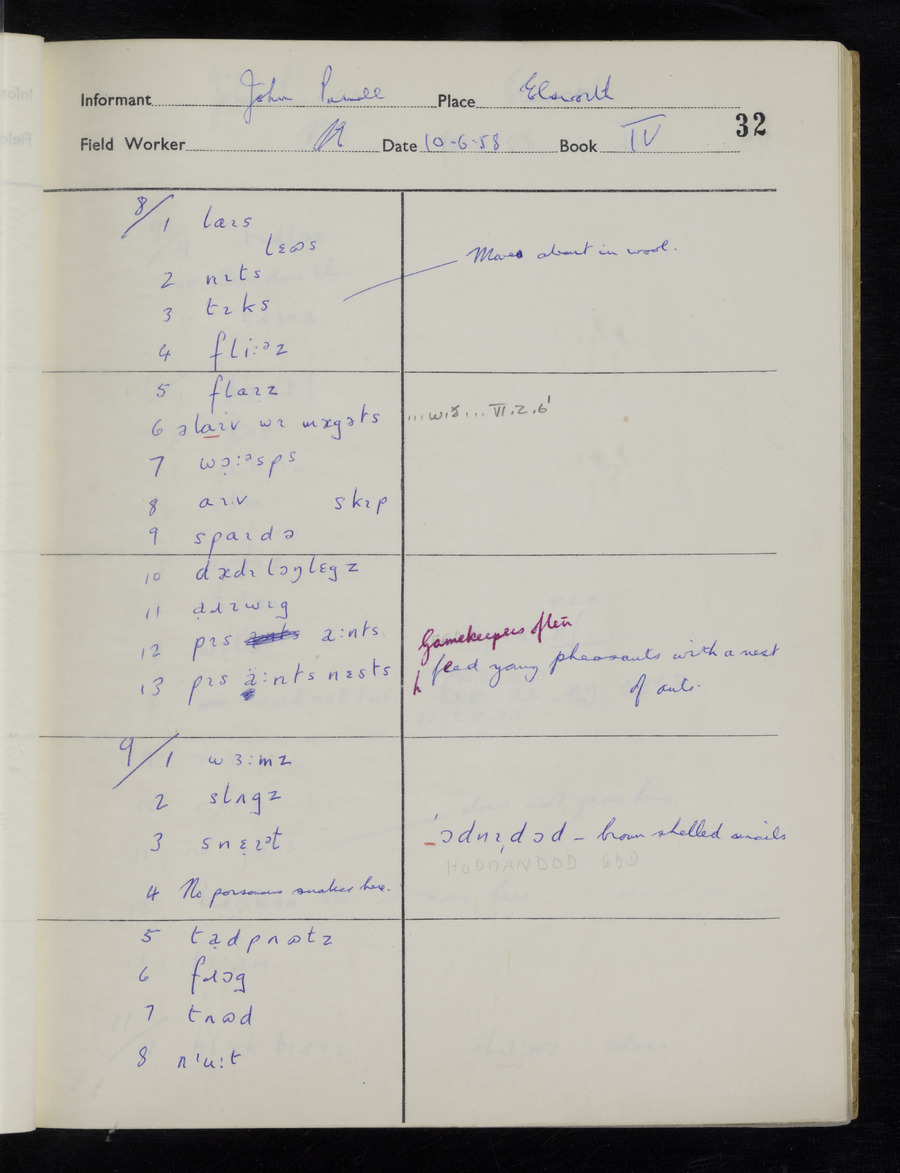 Informant John Place Elsworth
32
Field Worker Date 10-6-58 Book IV
8/1 laɪs
lɛʊs
2 nɪts
Moves about in wool.
3 tɪks
4 fli:ᵊz
5 flaɪz
6 əlaɪv wɪ mægəts ...wɪð... VI.2.6'
7 wɔ̣:ᵊsps
8 aɪv skɪp
9 spaɪdə
10 dædɪ lɔŋlɛgz
11 ạɹɪwɪg
12 pɪs a:nts
Gamekeepers often
13 pɪs ä:nts nɛsts
h feed young pheasants with a nest
of ants.
9/1 wɜ:mz
2 slʌgz
3 snɛ̣ɪᵊt
'ɔdmɪ̣dɔd – brown shelled snails
HODMANDOD EDD
4 No poisonous snakes here.
5 tạdpʌʊtz
6 fɹɔg
7 tʌʊd
8 nˈu:t